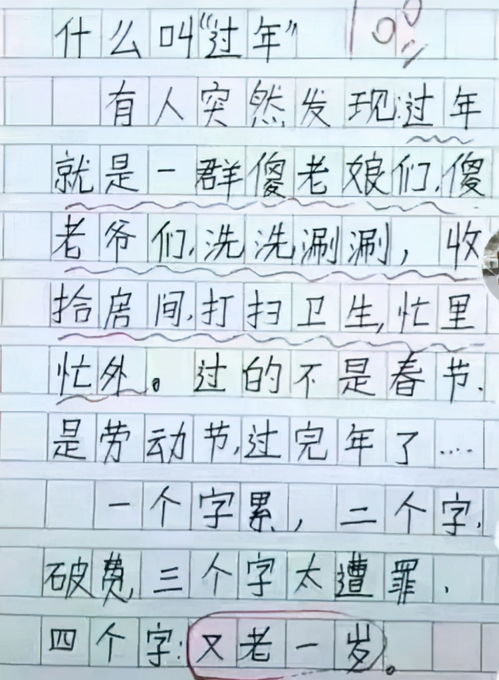 什么叫“过年” 100
有人突然发现:过年
就是一群傻老娘们,傻
老爷们,洗洗涮涮,收
拾房间,打扫卫生,忙里
忙外。过的不是春节.
是劳动节,过完年了....
一个字累,二个字,
破费三个字太遭罪.
四个字:又老一岁。